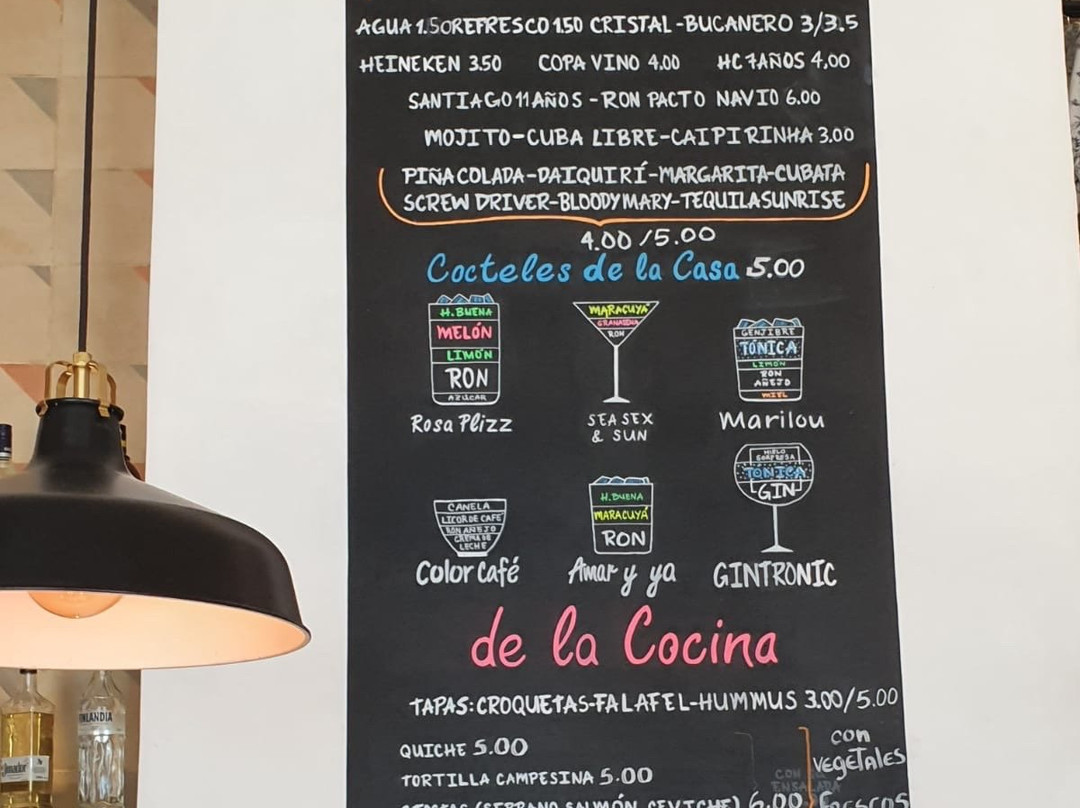 AGUA 1.50 REFRESCO 1.50 CRISTAL-BUCANERO 3/3.5
HEINEKEN 3.50 COPA VINO 4,00 HC 7AÑOS 4,00
SANTIAGO 11 AÑOS - RON PACTO NAVIO 6.00
MOJITO-CUBA LIBRE-CAIPIRINHA 3.00
PIÑA COLADA-DAIQUIRÍ-MARGARITA-CUBATA
SCREW DRIVER-BLOODY MARY-TEQUILA SUNRISE
4.00/5.00
Cocteles de la Casa 5.00
H.BUENA
MELÓN
LIMÓN
RON
AZÚCAR
Rosa Plizz
MARACUYÁ
GRANADINA
RON
SEA SEX
& SUN
GENJIBRE
TÓNICA
LIMÓN
RON
AÑEJO
MIEL
Marilou
CANELA
LICOR DE CAFÉ
RON AÑEJO
CREMA DE
LECHE
Color Café
H.BUENA
MARACUYÁ
RON
Amar y ya
HIELO
SORPRESA
TÓNICA
GIN
GINTRONIC
de la Cocina
TAPAS: CROQUETAS-FALAFEL-HUMMUS 3.00/5.00
QUICHE 5.00
TORTILLA CAMPESINA 5.00
(SERRANO, SALMÓN, CEVICHE) 6.00
con
vegetales
frescos
CON
ENSALADA
NLANDIA